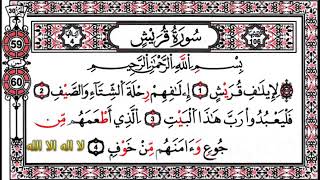 59
60
106
سُورَةُ قُرَيْشٍ
بِسْمِ اللَّهِ الرَّحْمَٰنِ الرَّحِيمِ
لِإِيلَافِ قُرَيْشٍ 1 إِۦلَافِهِمْ رِحْلَةَ الشِّتَاءِ وَالصَّيْفِ 2
فَلْيَعْبُدُوا رَبَّ هَٰذَا الْبَيْتِ 3 الَّذِي أَطْعَمَهُم مِّن
جُوعٍ وَءَامَنَهُم مِّنْ خَوْفٍ 4 لا اله الا الله